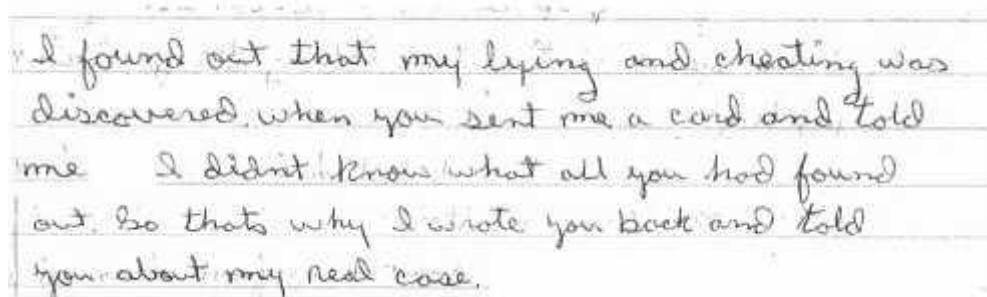 I found out that my lying and cheating was
discovered when you sent me a card and told
me I didn't know what all you had found
out. So thats why I wrote you back and told
you about my real case.